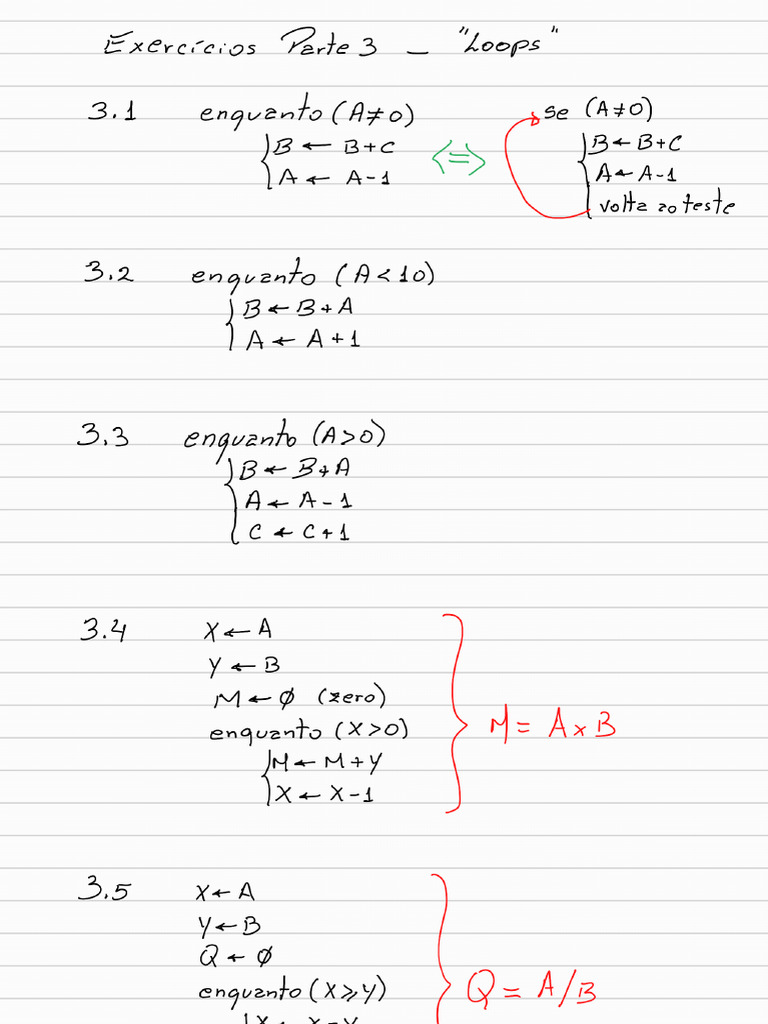 Exercícios Parte 3 – "Loops"
3.1 enquanto (A≠0) se (A≠0)
B ← B+C <=> B ← B+C
A ← A-1 A ← A-1
volta ao teste
3.2 enquanto (A<10)
B ← B+A
A ← A+1
3.3 enquanto (A>0)
B ← B+A
A ← A-1
C ← C+1
3.4 X ← A
Y ← B
M ← ∅ (zero)
enquanto (X>0) M = A x B
M ← M+Y
X ← X-1
3.5 X ← A
Y ← B
Q ← ∅
enquanto (X≥Y) Q = A/B
X ← X-Y